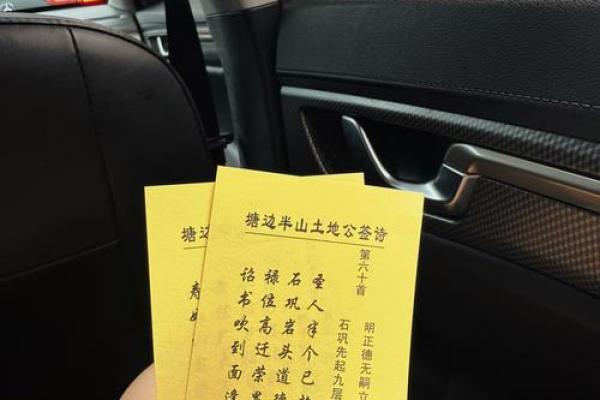 塘边半山土地公签诗
第六十首
明正德无嗣立
石巩先起九层
圣人半个已
石巩岩头道
禄位高迁荣
诏书吹到面
塘边
寿